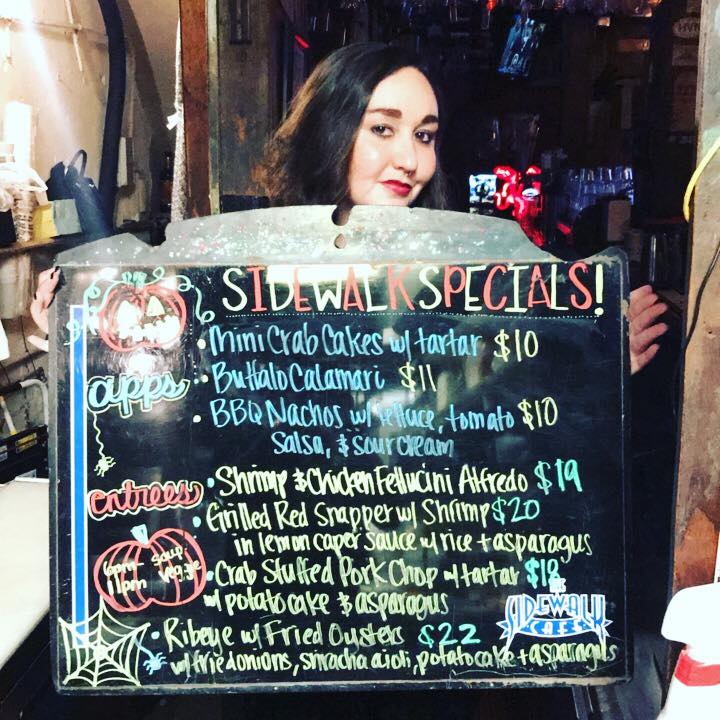 SIDEWALK SPECIALS!
apps
• Mini Crab Cakes w/ tartar $10
• Buffalo Calamari $11
• BBQ Nachos w/ lettuce, tomato $10
salsa, & sour cream
entrees
• Shrimp & Chicken Fettucini Alfredo $19
• Grilled Red Snapper w/ Shrimp $20
in lemon caper sauce w/ rice + asparagus
• Crab Stuffed Pork Chop w/ tartar $18
w/ potato cake & asparagus
• Ribeye w/ Fried Oysters $22
w/ fried onions, sriracha aioli, potato cake + asparagus
6pm-
11pm
soup
veggie
THE
SIDEWALK
CAFE